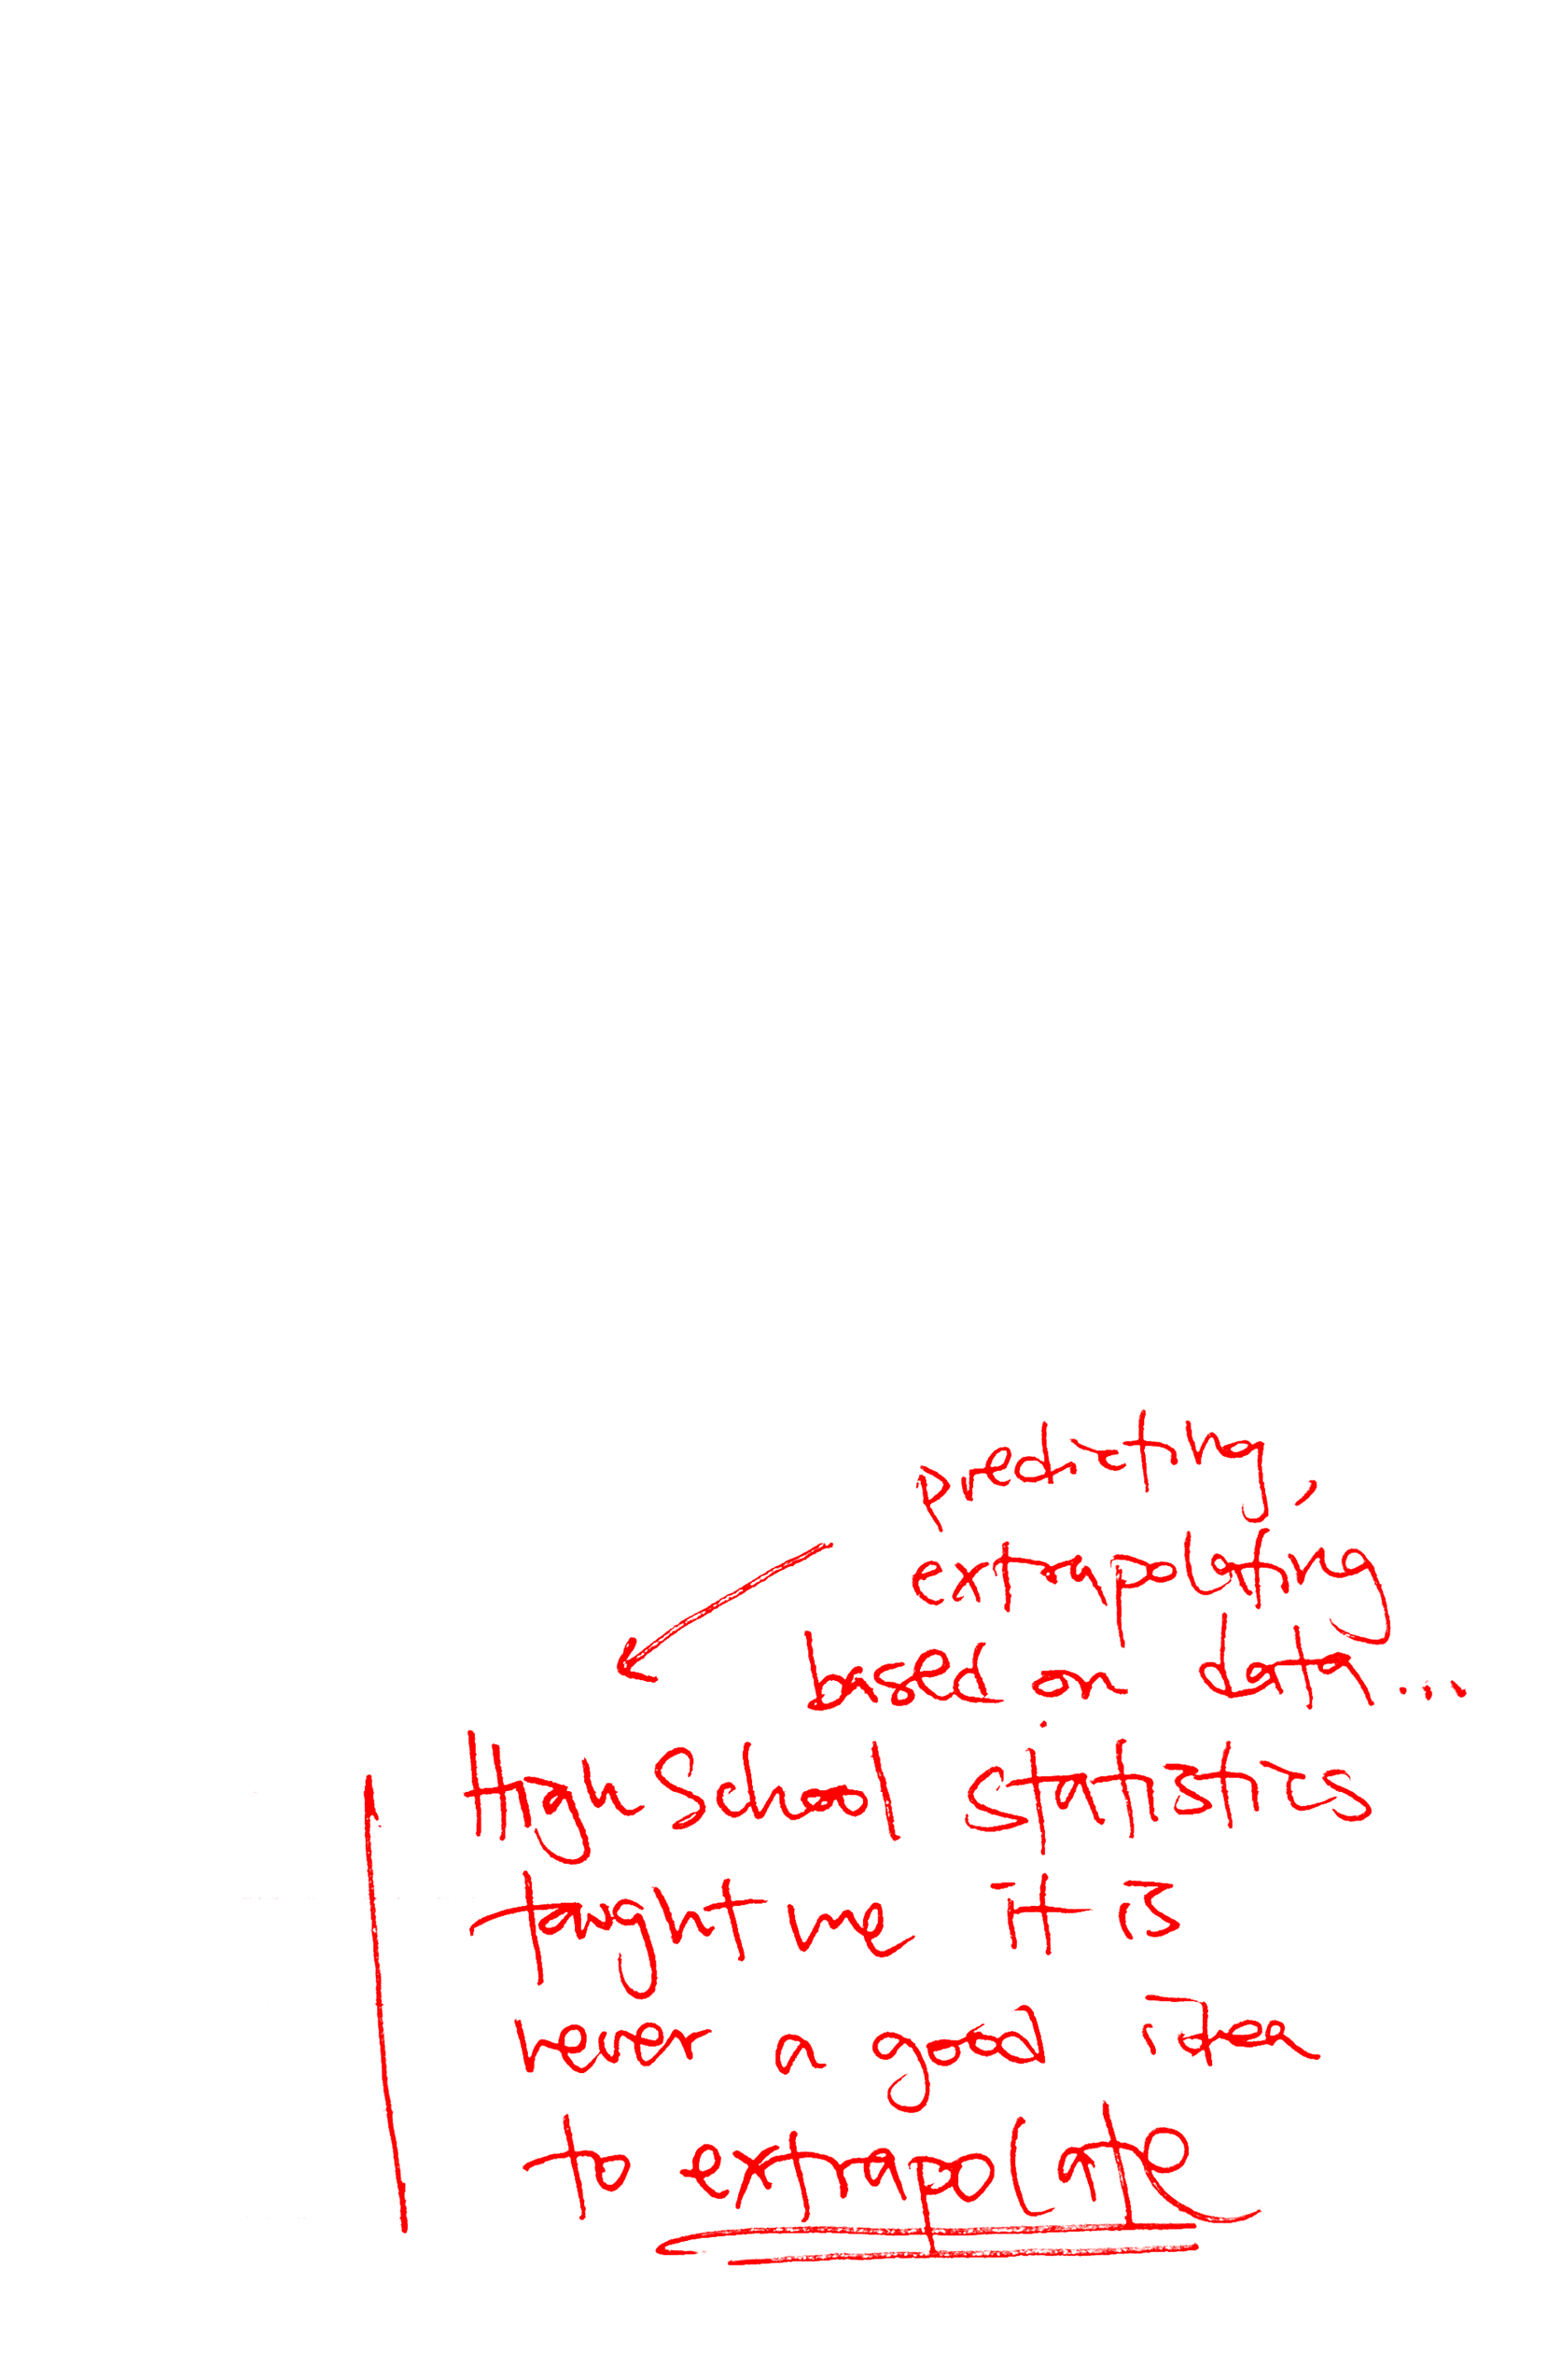 predicting,
extrapolating
based on data...
High School statistics
taught me it is
never a good idea
to extrapolate